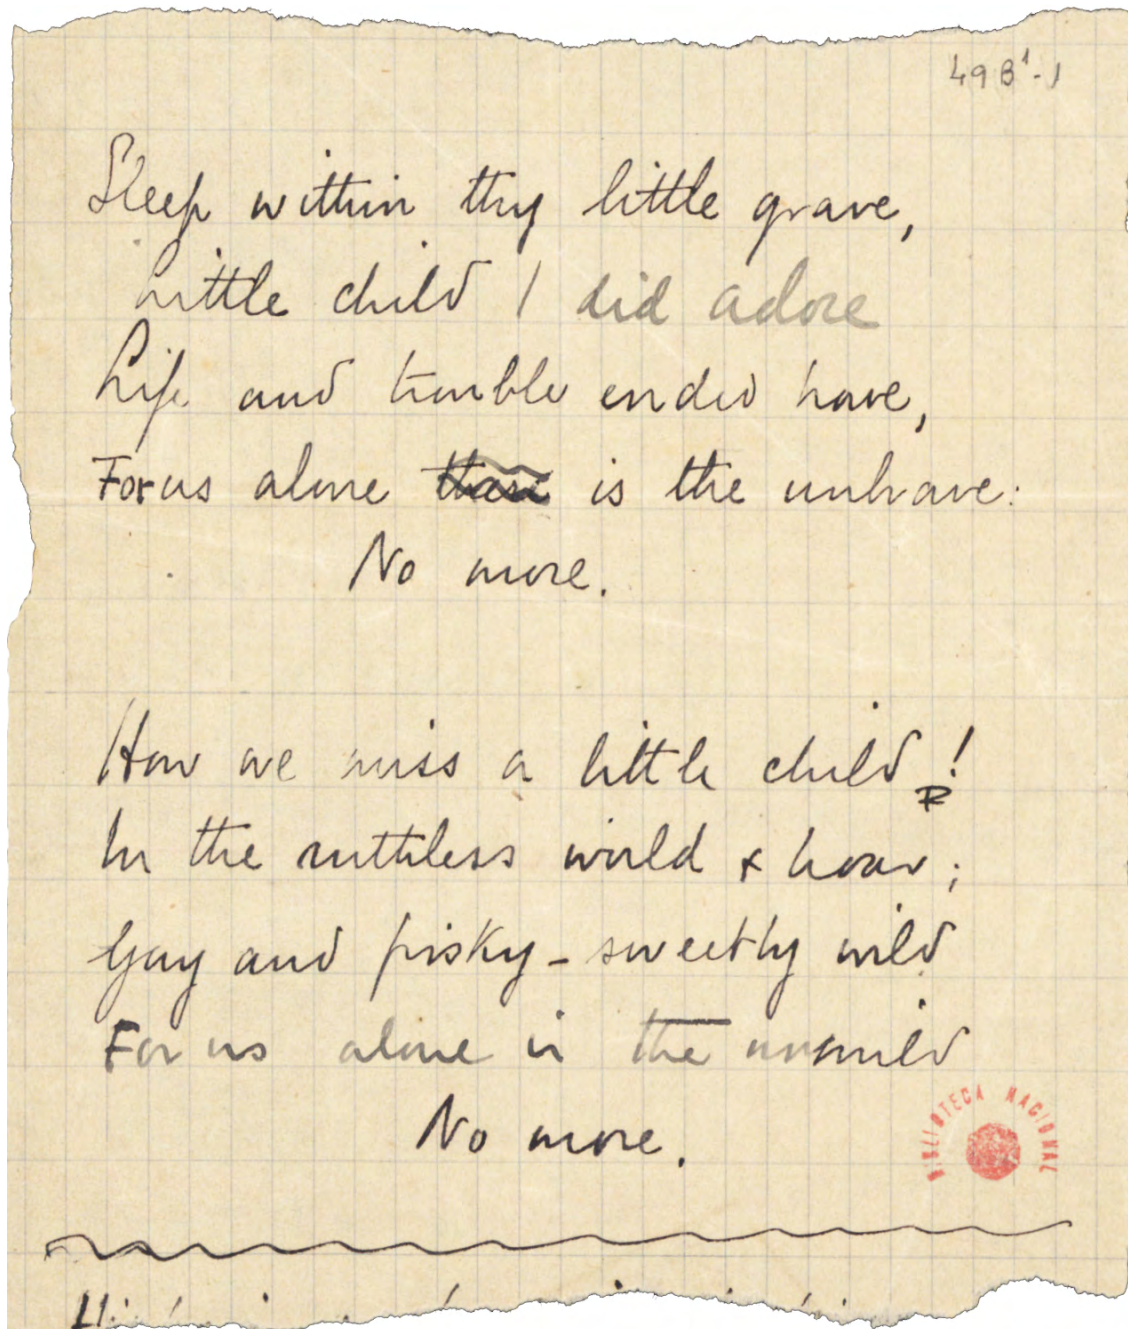 49B¹-1
Sleep within thy little grave,
Little child I did adore
Life and trouble ended have,
For us alone is the unbrave:
No more.
How we miss a little child!
In the ruthless world & hoar;
Gay and frisky - sweetly wild
For us alone is the unmild
No more.
BIBLIOTECA NACIONAL